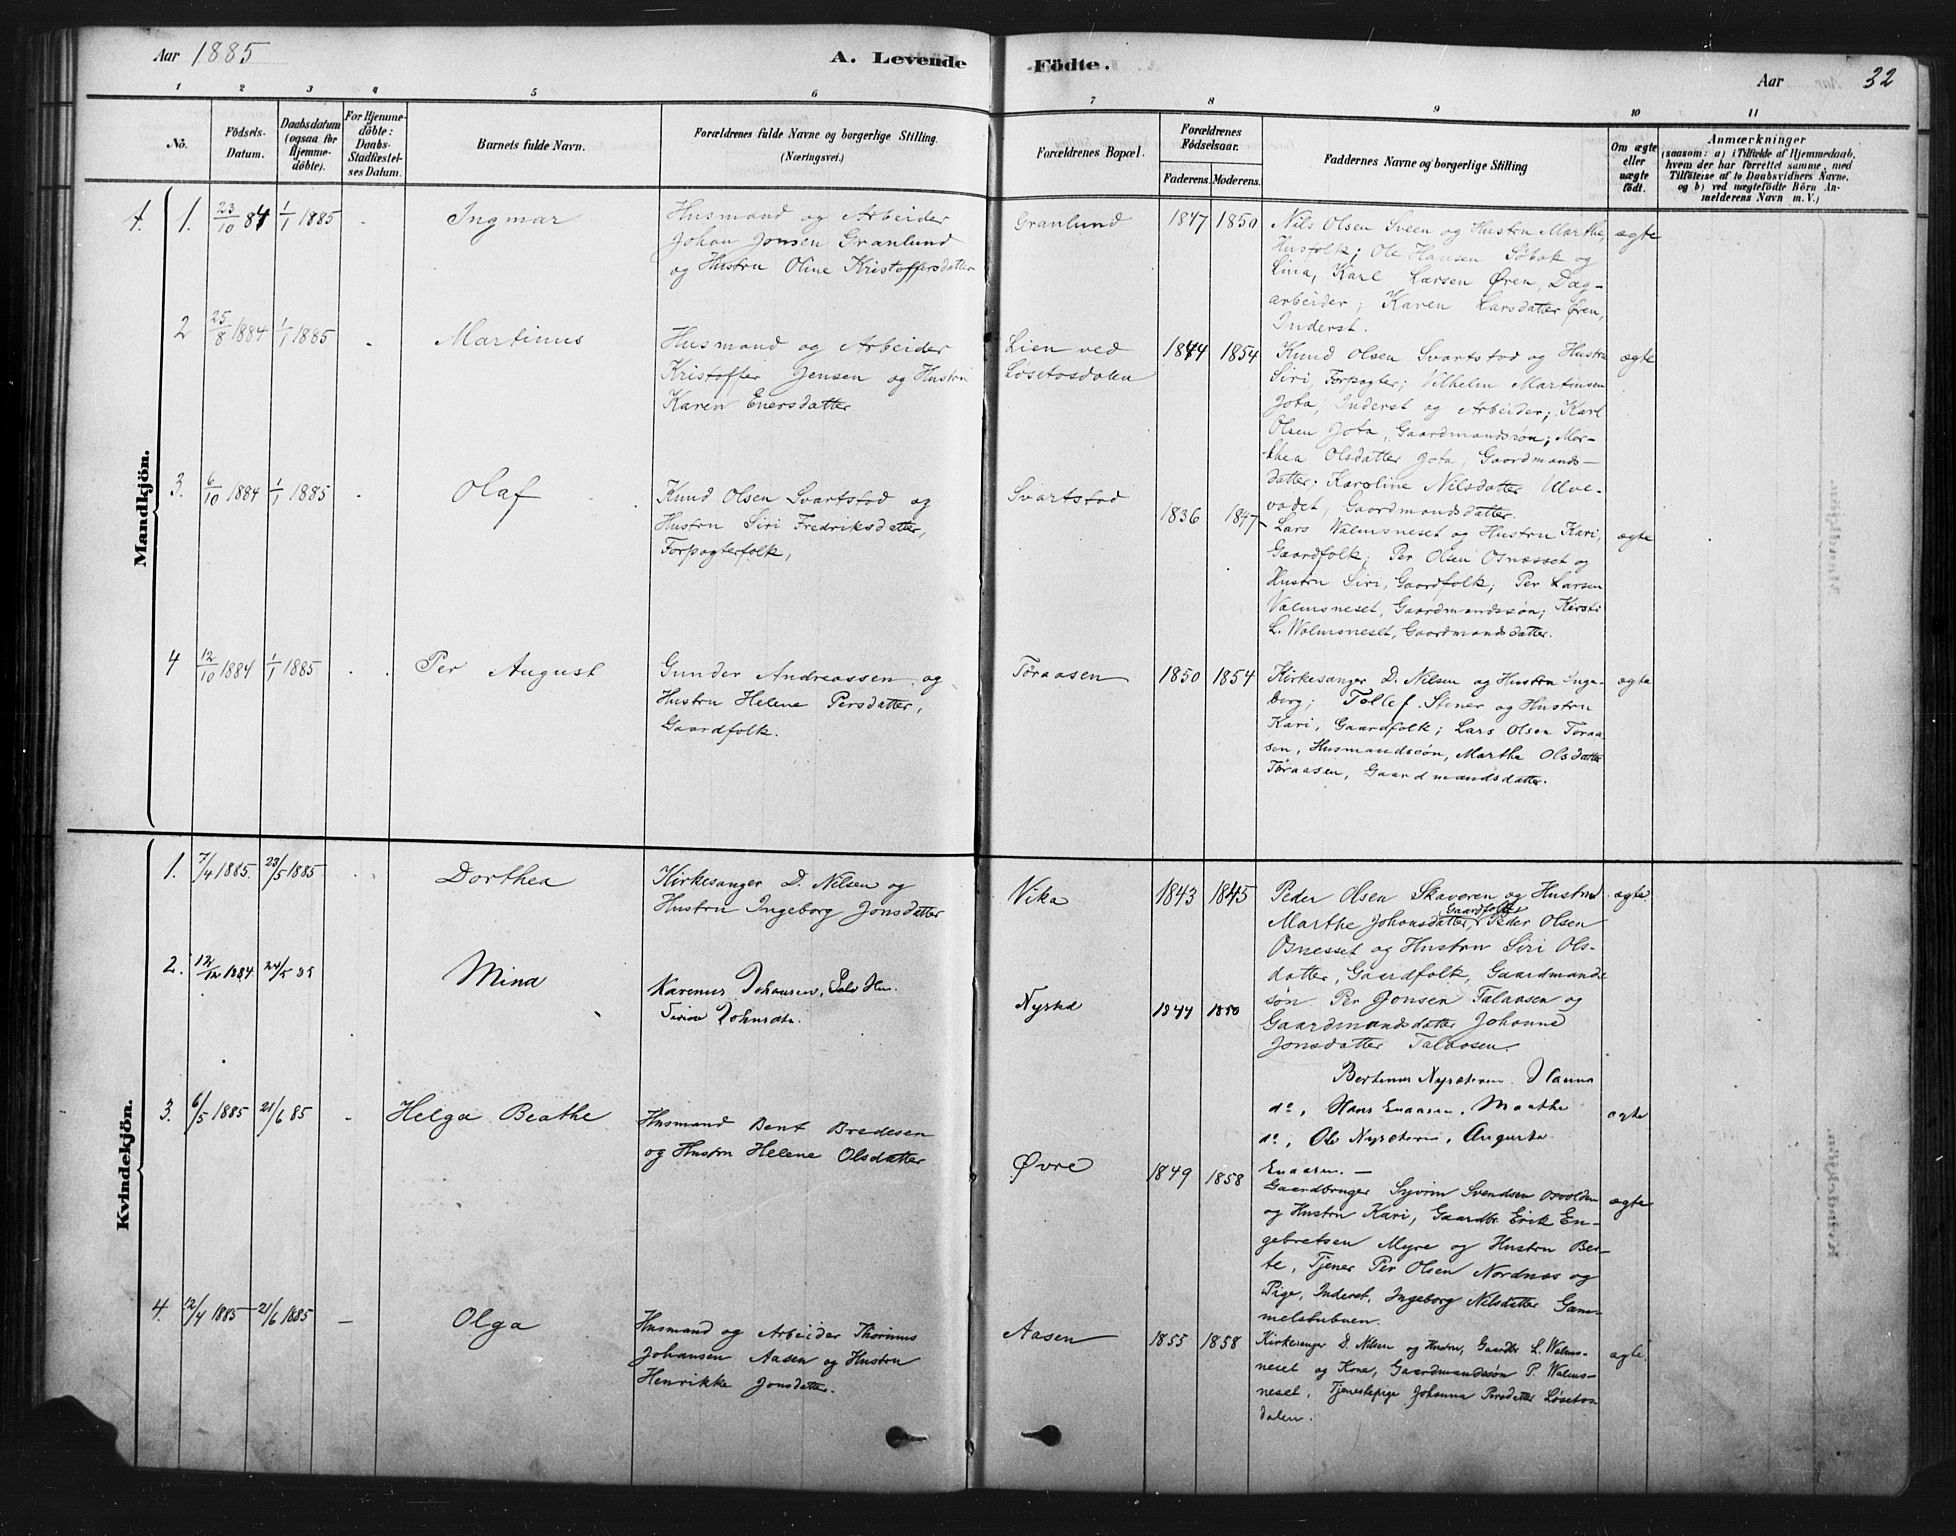 Aar 1885
A. Levende Födte.
Aar
32
1 2 3 4 5 6 7 8 9 10 11
No.
Födsels-Datum.
Daabsdatum (ogsaa for Hjemmedöbte).
For Hjemmedöbte: Daabs-Stadfæstelses Datum.
Barnets fulde Navn.
Forældrenes fulde Navne og borgerlige Stilling.
(Næringsvei.)
Forældrenes Bopæl.
Forældrenes Födselsaar.
Faderens. Moderens.
Faddernes Navne og borgerlige Stilling
Om ægte eller uægte født.
Anmærkninger
(saasom: a) i Tilfælde af Hjemmedaab,
hvem der har forrettet samme, med
Tilföielse af to Daabsvidners Navne.
og b) ved uægtefödte Börn An-
melderens Navn m. V.)
Mandkjön.
1. 23/10 84 1/1 1885 Ingmar
Husmand og Arbeider
Johan Jonsen Granlund
og Hustru Oline Kristoffersdatter
Granlund 1847 1850
Nils Olsen Sveen og Hustru Marthe,
Husfolk; Ole Hansen og
Lina, Karl Larsen Øren, Dag-
arbeider; Karen Larsdatter Øren,
Inderst.
ægte
2 25/8 1884 1/1 1885 Martinus
Husmand og Arbeider
Kristoffer Jensen og Hustru
Karen Enersdatter
Lien ved
Løsetosdalen
1844 1854
Knud Olsen Svartstod og Hustru
Siri, Forpagter; Vilhelm Martinsen
Jota, Inderst og Arbeider; Karl
Olsen Jota, Gaardmandssøn; Mar-
thea Olsdatter Jota, Gaardmands-
datter; Karoline Nilsdatter Ulve-
vadet, Gaardmandsdatter.
ægte
3. 6/10 1884 1/1 1885 Olaf
Knud Olsen Svartstod og
Hustru Siri Fredriksdatter,
Forpagterfolk,
Svartstod 1836 1847
Lars Walmsneset og Hustru Kari,
Gaardfolk; Per Olsen Osnæsset og
Hustru Siri, Gaardfolk; Per Larsen
Valmsneset, Gaardmandssøn; Kersti
L. Walmsneset, Gaardmandsdatter.
ægte
4 12/10 1884 1/1 1885 Per August
Gunder Andreassen og
Hustru Helene Persdatter,
Gaardfolk.
Tøraasen 1850 1854
Kirkesanger D. Nilsen og Hustru Inge-
borg; Tollef Stener og Hustru
Kari, Gaardfolk; Lars Olsen Tøraa-
sen, Husmandssøn, Marthe Olsdatter
Tøraasen, Gaardmandsdatter.
ægte
Kvindekjön.
1. 7/4 1885. 23/5 1885 Dorthea
Kirkesanger D. Nilsen og
Hustru Ingeborg Jonsdatter
Vika 1843 1845
Peder Olsen Skavoren og Hustru
Marthe Johansdatter, Gaardfolk, Peder Olsen
Osnesset og Hustru Siri Ols-
datter, Gaardfolk, Gaardmands-
søn Per Jonsen Talaasen og
Gaardmandsdatter Johanne
Jonsdatter Talaasen.
ægte
2. 12/12 1884. 24/5 85 Mina
Karenus Johansen,
Nysted 1844 1850
Hanna
do, Hans Enaasen. Marthe
do, Ole Augusta
Enaasen. —
ægte
3. 6/5 1885 21/6 85 Helga Beathe
Husmand Bent Bredesen
og Hustru Helene Olsdatter
Øvre 1849 1858
Gaardbruger Syvrin Svendsen Osvolden
og Hustru Kari, Gaardbr. Erik En-
gebretsen Myre og Hustru Ber-
te, Tjener Per Olsen Nordnæs og
Pige, Inderst, Ingeborg Nilsdatter Gam-
melstubuen.
ægte
4. 12/4 1885 21/6 1885 — Olga
Husmand og Arbeider Thorinus
Johansen Aasen og Hustru
Henrikke Jonsdatter.
Aasen 1855 1858
Kirkesanger D. Nilsen og Hustru, Gaardbr. L. Walms-
neset og Kone, Gaardmandssøn P. Walms-
neset, Tjenestepige Johanna Persdatter Løsetos-
dalen.
ægte.